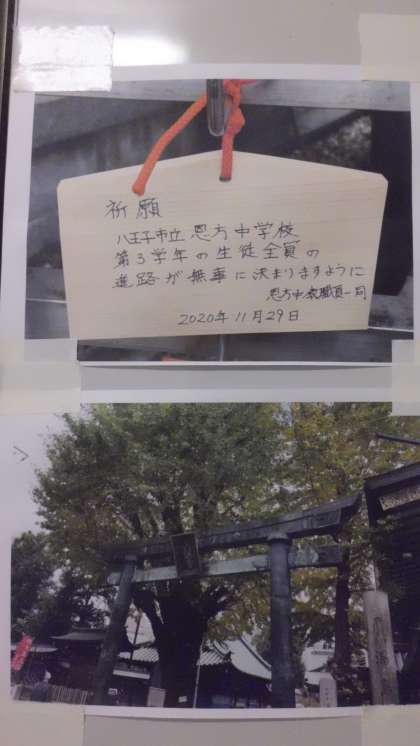 祈願
八王子市立恩方中学校
第3学年の生徒全員の
進路が無事に決まりますように
恩方中教職員一同
2020年11月29日